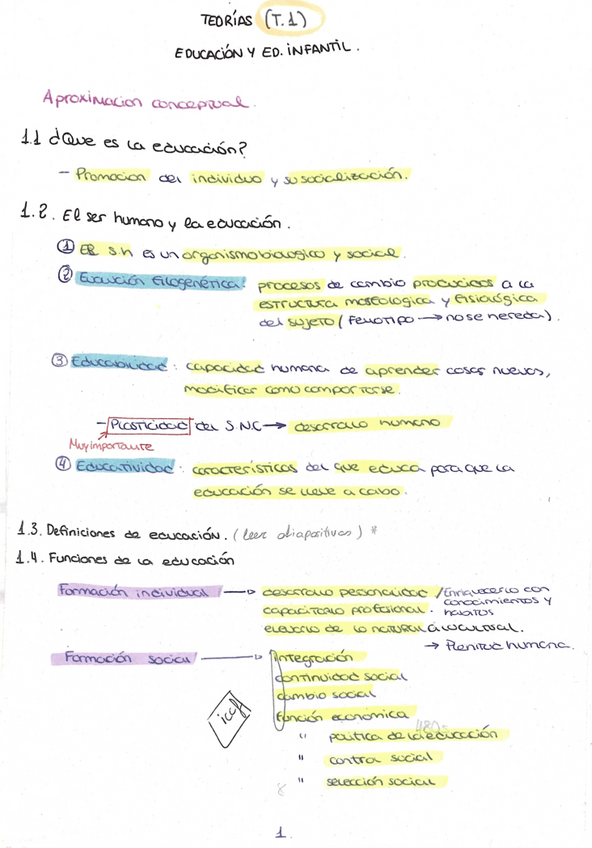 TEORÍAS (T.1)
EDUCACIÓN Y ED. INFANTIL.
Aproximacion conceptual.
1.1 ¿Que es la educación?
- Promocion del individuo y su socialización.
1.2. El ser humano y la educación.
① El s.h es un organismo biologico y social.
② Evolución filogenética: procesos de cambio producidos a la
estructura morfologica y fisiológica
del sujeto (Fenotipo → no se hereda).
③ Educabilidad: capacidad humana de aprender cosas nuevas,
modificar como comportarse.
- Plasticidad del S.N.C → desarrollo humano
Muy importante
④ Educatividad: características del que educa para que la
educación se lleve a cabo.
1.3. Definiciones de educación. (leer diapositivas) *
1.4. Funciones de la educación
Formación individual → desarrollo personalidad / Enriquecerlo con
capacitarlo profesional. conocimientos y
hábitos
elevarlo de lo natural a lo cultural.
→ Plenitud humana.
Formación social → Integración
continuidad social
cambio social
función económica
" política de la educación
" contra social
" selección social
1.